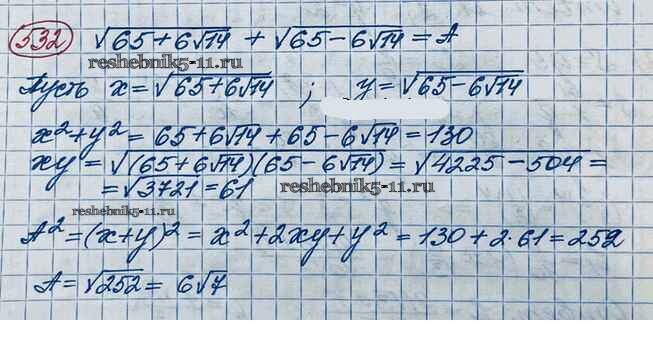 532 √65+6√14 + √65-6√14 = A
reshebnik5-11.ru
Пусть x=√65+6√14 ; y=√65-6√14
x²+y²= 65+6√14+65-6√14=130
xy=√(65+6√14)(65-6√14)=√4225-504=
=√3721=61 reshebnik5-11.ru
reshebnik5-11.ru
A²=(x+y)²= x²+2xy+y²=130+2·61=252
A=√252= 6√7